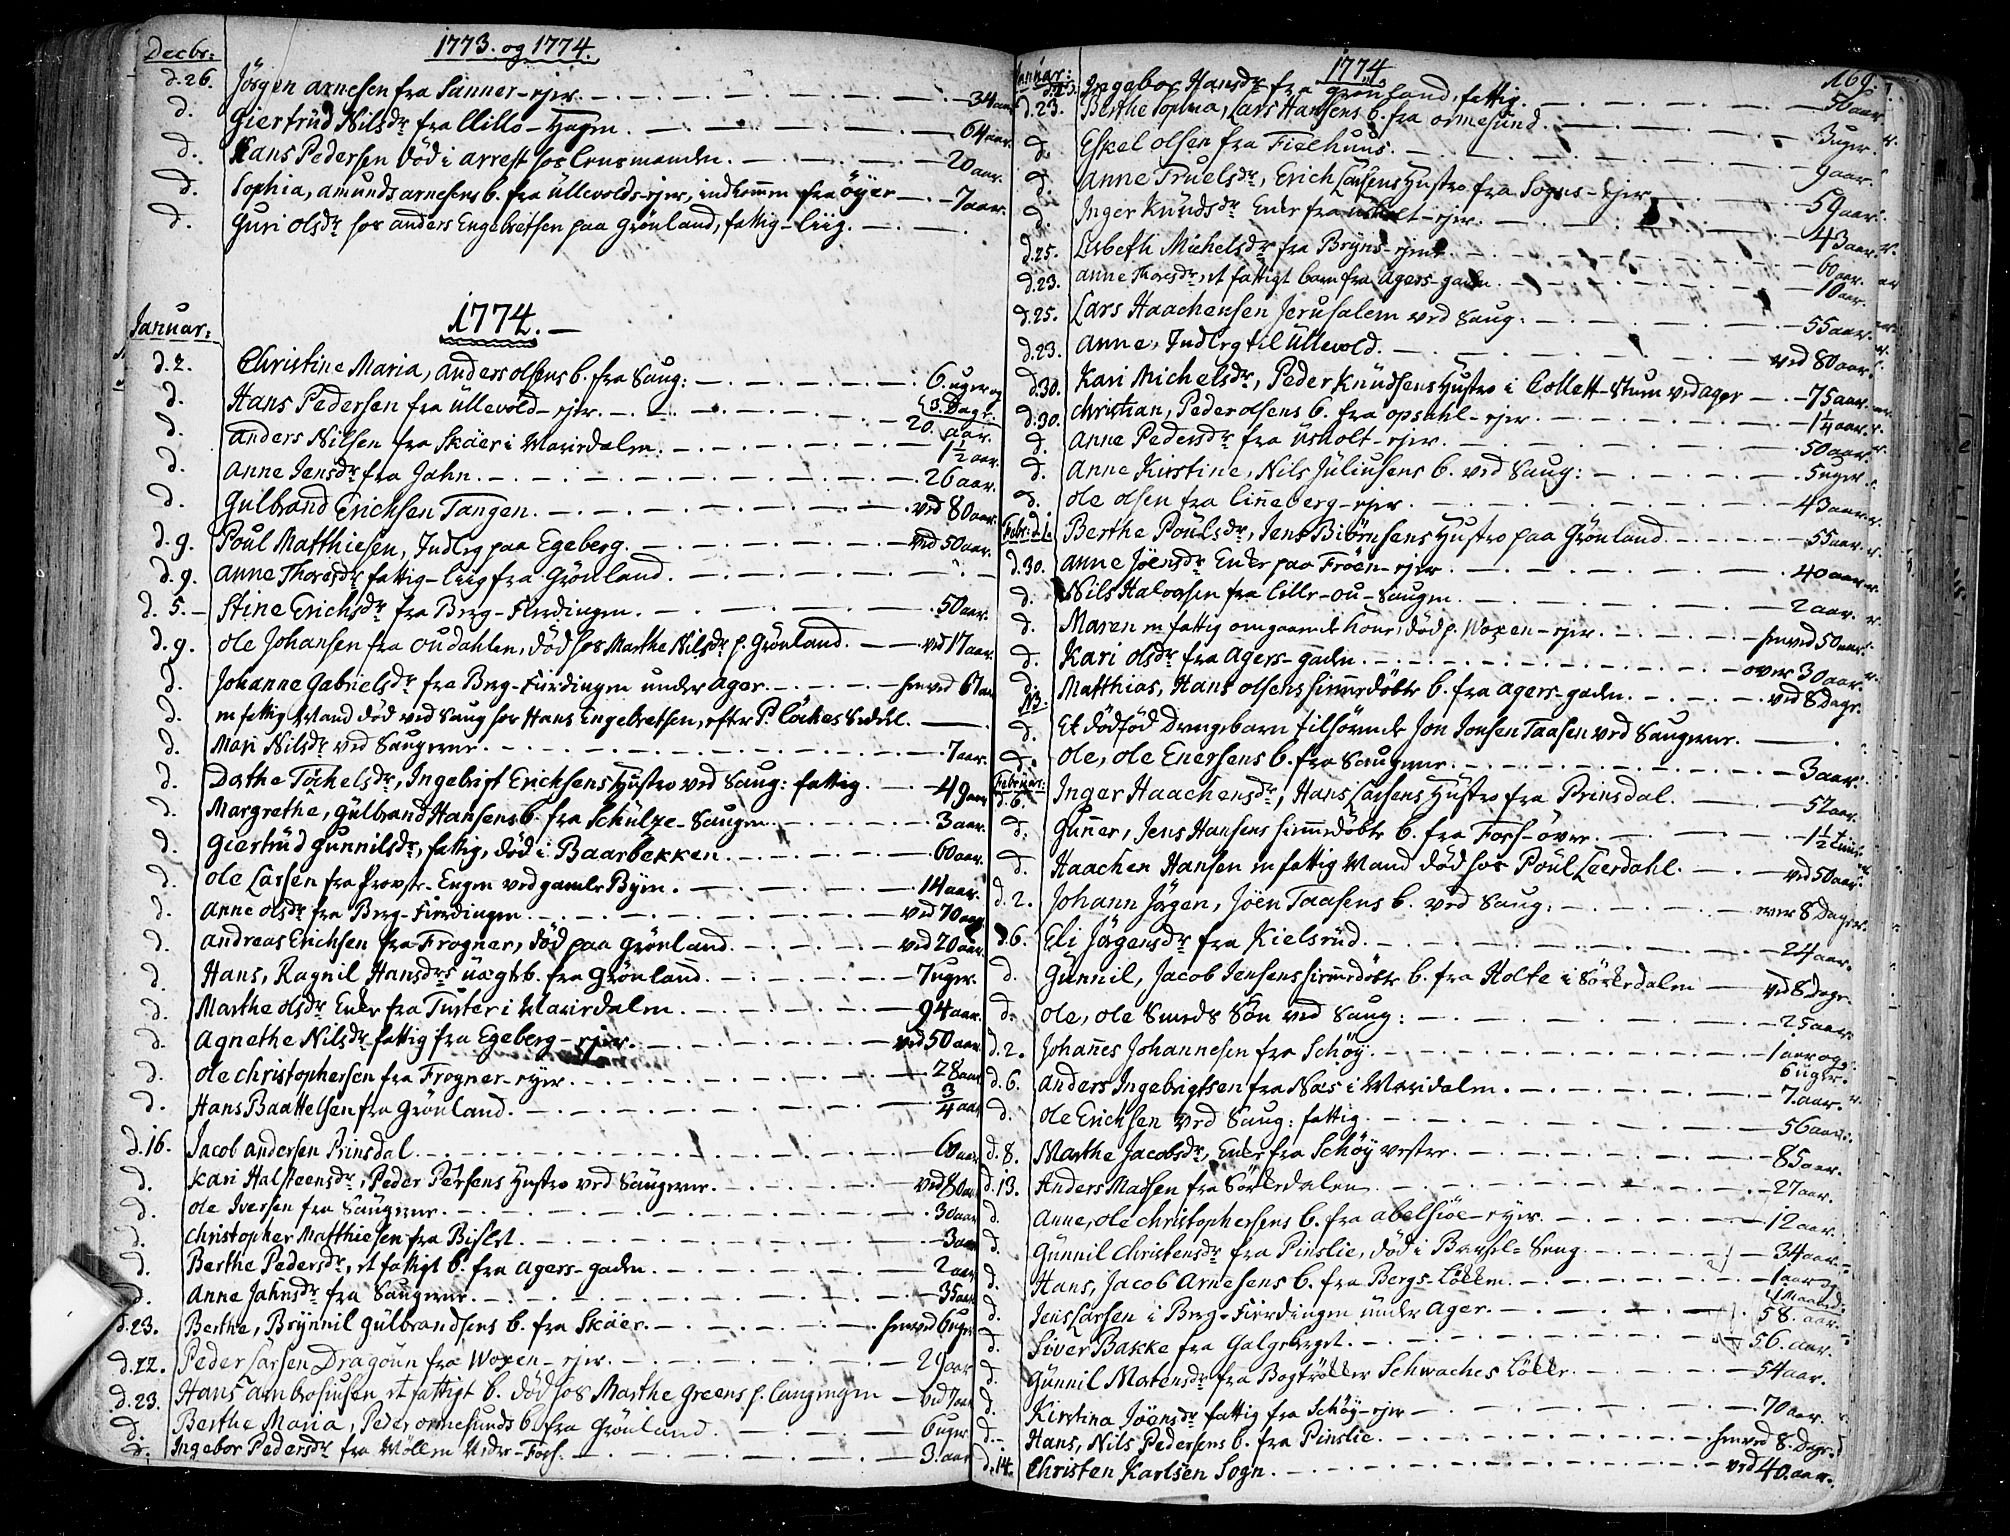 1773. og 1774.
Decbr:
d. 26. Jörgen Arnesen fra Sanner-ejer. 34 aar.
d. Giertrüd Nilsdr fra Lillo-Hagen. 64 aar.
d. Hans Pedersen död i arrest hos Lensmanden. 20 aar.
d. Sophia, amunds arnesens b. fra Üllevolds-ejer, indkommen fra öyer 7 aar.
d. Guri olsdr hos anders Engebretsen paa Grönland, fattig-liig.
1774.
Januar:
d. 2. Christine Maria, anders olsens b. fra Saug: 6. uger og
3. Dage.
d. Hans Pedersen fra Üllevold-ejer. 20. aar.
d. anders Nilsen fra Skäer i Marisdalen. 1½ aar.
d. anne Jensdr fra Jahn. 26 aar.
d. Gulbrand Erichsen Tangen. ved 80 aar.
d. 9. Poül Matthiesen, Indleg paa Egeberg. ved 50 aar.
d. 9. anne Thoresdr fattig-liig fra Grönland.
d. 5. Stine Erichsdr fra Berg-Fierdingen. 50 aar.
d. 9. ole Johansen fra oudahlen, död hos Marthe Nilsdr p. Grönland. ved 17 aar.
d. Johanne Gabrielsdr fra Berg-Fierdingen under Ager. henved 67 aar
d. en fattig Mand död ved Saug hos Hans Engebretsen, efter P. Lökes Seddel.
d. Mari Nilsdr ved Saugerne. 7 aar.
d. Dorthe Tochelsdr, Ingebrigt Erichsens Hustro ved Saug: fattig. 49 aar
d. Margrethe, Gülbrand Hansens b. fra Schülze-Saugen. 3 aar.
d. Giertrüd Gunnilsdr, fattig, död i Baarbekken. 60 aar.
d. ole Larsen fra Provste-Engen ved gamle Byen. 14 aar.
d. anne olsdr fra Berg-Fierdingen. ved 70 aar
d. andreas Erichsen fra Frogner, död paa Grönland. ved 20 aar.
d. Hans, Ragnil Hansdrs üægte b. fra Grönland. 7 uger.
d. Marthe olsdr Enke fra Füster i Marisdalen. 94 aar.
d. Agnethe Nilsdr fattig fra Egeberg-ejer. ved 50 aar
d. ole christophersen fra Frogner-eyer. 28 aar
d. Hans Baattelsen fra Grönland. ¾ aar
d. 16. Jacob andersen Prinsdal. 60 aar
d. Kari Halsteensdr, Peder Persens Hustro ved Saugerne. ved 80 aar
d. ole Iversen fra Saugerne. 30 aar
d. christopher Matthiesen fra Bislet. 3 aar
d. Berthe Pedersdr, et fattigt b. fra Agers-gaden. 2 aar
d. Anne Jahnsdr fra Saugerne. 35 aar
d. 23. Berthe, Brynnil Gülbrandsens b. fra Skäer. henved 6 uger
d. 22. Peder Larsen Dragoun fra Woxen-ejer. 29 aar
d. 23. Hans ambrosiusen, et fattigt b. död hos Marthe Greens p. Leugingen ved 7 aar
d. Berthe Maria, Peder ormesunds b. fra Grönland. 6 uger
d. Ingebor Pedersdr fra Möllen Neder-Foss. 3. aar
1774 169.
Januar:
d. 23. Ingebor Hansdr fra Grönland, fattig. 50 aar
d. 23. Berthe Sophia, Lars Hansens b. fra ormesund. 3 uger.
d. Eskel olsen fra Fielhuus. 9 aar.
d. Anne Truelsdr, Erich Larsens Hustro fra Sogns-Ejer 59 aar.
d. Inger Knudsdr Enke fra Üsholt-ejer. 43 aar.
d. 25. Lisbeth Michelsdr fra Bryns-ejer. 60 aar.
d. 23. anne Thoresdr, et fattigt barn fra Agers-gaden. 10 aar.
d. 25. Lars Haachensen Jerusalem ved Saug: 55 aar.
d. 23. anne, Indleg til Üllevold. ved 80 aar.
d. 30. Kari Michelsdr, Peder Knüdsens Hustro i Collett-Stuen ved ager 75 aar.
d. 30. christian, Peder olsens b. fra opsahl-ejer. 1¼ aar.
d. Anne Pedersdr fra Üsholt-ejer. 50 aar.
d. Anne Kirstine, Nils Jüliusens b. ved Saug: 5 uger.
d. ole olsen fra Linneberg-ejer. 43 aar.
Febr: d. 1. Berthe Poülsdr, Jens Biörnsens Hustro paa Grönland. 55 aar.
d. 30. anne Jöensdr Enke paa Fröen-ejer. 40 aar.
d. Nils Halvorsen fra Lille-ou-Saugen. 2 aar.
d. Maren en fattig omgaaende kone, död p. Woxen-ejer. henved 50 aar.
d. Kari olsdr fra Agers-gaden. over 30 aar.
d. Matthias, Hans olsens hiemmedöbte b. fra agers-gaden. ved 8 Dage.
NB:
d. Et dödföd Drengebarn tilhörende Jon Jonsen Taasen ved Saugerne.
d. ole, ole Enersens b. fra Saugerne. 3 aar.
Februar:
d. 6. Inger Haachensdr, Hans Larsens Hustro fra Prinsdal. 52 aar.
d. Gunner, Jens Hansens hiemmedöbte b. fra Foss-över. 1½ Time
d. Haachen Hansen en fattig Mand död hos Poül Leerdahl. ved 50 aar.
d. 2. Johann Jörgen, Jöen Taasens b. ved Saug: over 8 Dage.
d. 6. Eli Jörgensdr fra Kielsrüd. 24 aar.
d. Günnil, Jacob Jensens hiemmedöbte b. fra Holte i Sörkedalen ved 8 Dage.
d. ole, ole Smeds Sön ved Saug: 25 aar.
d. 2. Johannes Johannesen fra Schöy. 1 aar og
6 uger.
d. 6. anders Ingebrigtsen fra Næs i Marisdalen. 7. aar.
d. ole Erichsen ved Saug: fattig. 56 aar.
d. 8. Marthe Jacobsdr, Enke fra Schöy vestre. 85 aar.
d. 13. Anders Madsen fra Sörkedalen. 27 aar.
d. Anne, ole christophersens b. fra abelsiöe-eyer. 12 aar.
d. Günnil christensdr fra Pinslie, död i Barsel-Seng. 34 aar.
d. Hans, Jacob Arnesens b. fra Bergs-Lökken. 1 aar og
1 Maaned.
d. Jens Larsen i Berg-Fierdingen under Ager. 58. aar.
d. Siver Bakke fra Galgeberget. 56. aar.
d. Günnil Mortensdr fra Bogtrökker Schwaches Lökke. 54 aar.
d. Kirstina Jöensdr fattig fra Schöy-ejer 70 aar.
d. Hans, Nils Pedersens b. fra Pinslie. henved 8. Dage.
d. 14. Christen Karlsen Sogn. ved 40. aar.